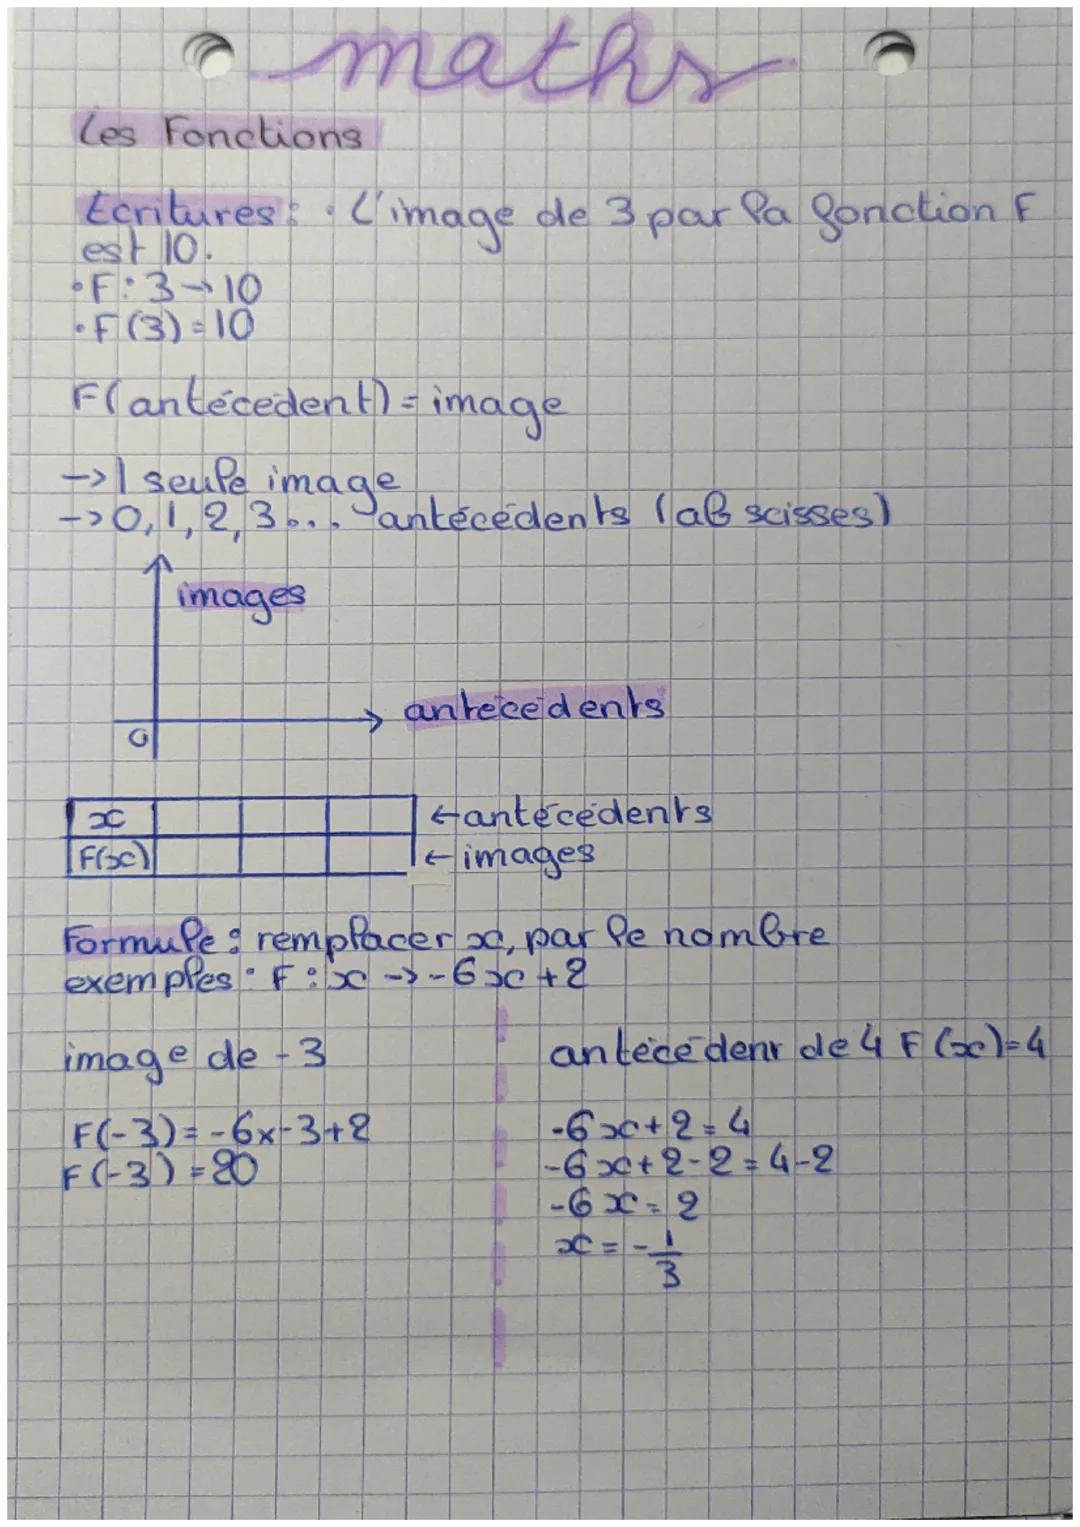 maths
Les Fonctions
Ecritures : • L'image de 3 par la fonction F
est 10.
• F : 3 → 10
• F (3) = 10
F(antécédent) = image
→ 1 seule image
→ 0, 1, 2, 3... antécédents (abscisses)
images
antécédents
0
x ← antécédents
F(x) ← images
Formule : remplacer x, par le nombre
exemples : F : x → -6x + 2
image de -3
F(-3) = -6x-3+2
F(-3) = 20
antécédent de 4 F (x) = 4
-6x + 2 = 4
-6x + 2 - 2 = 4 - 2
-6x = 2
x = -1/3